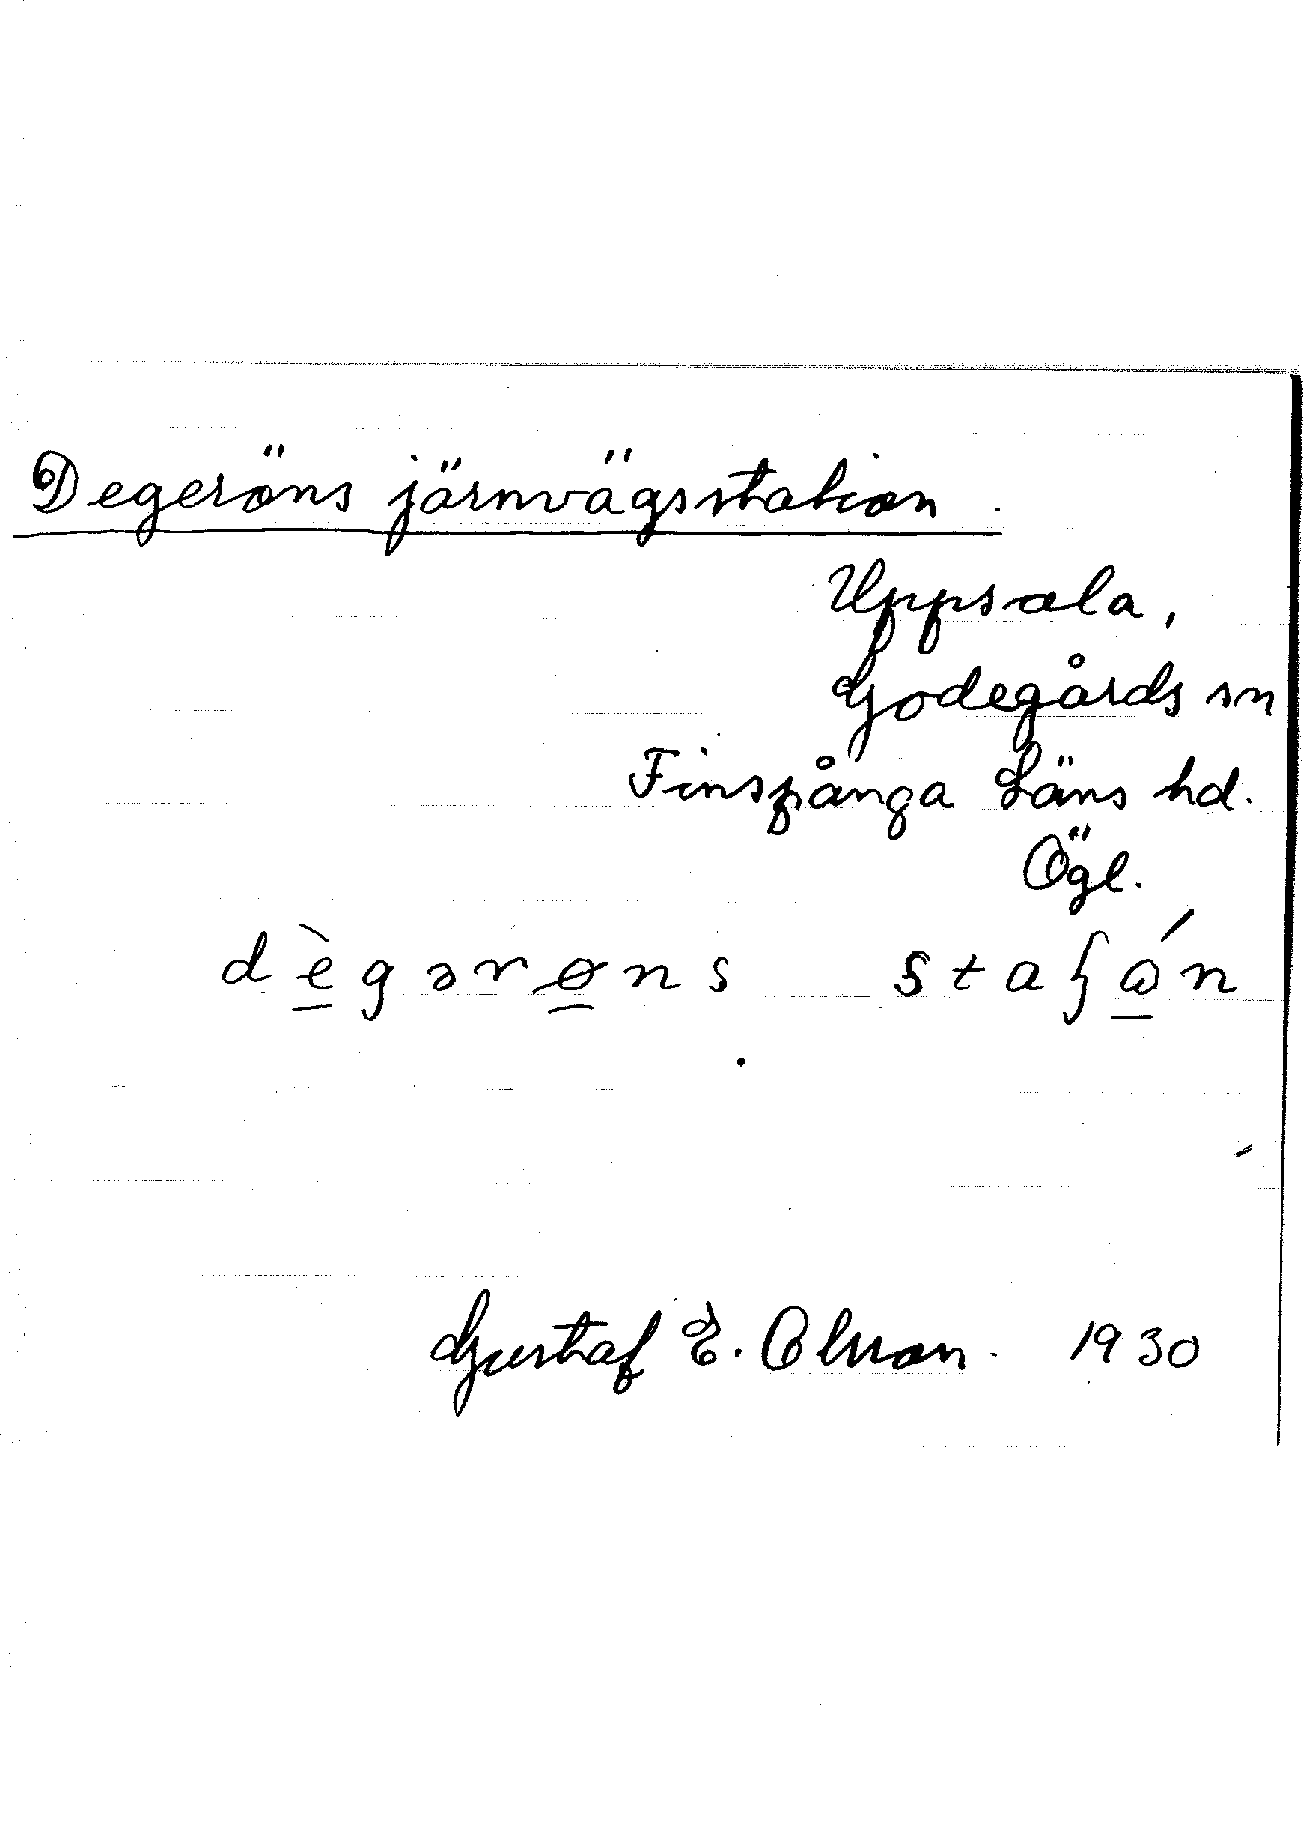 Degeröns järnvägsstation.
Uppsala,
Godegårds sn
Finspånga Läns hd.
Ögl.
dègərøns staʃón
Gustaf E. Olsson. 1930